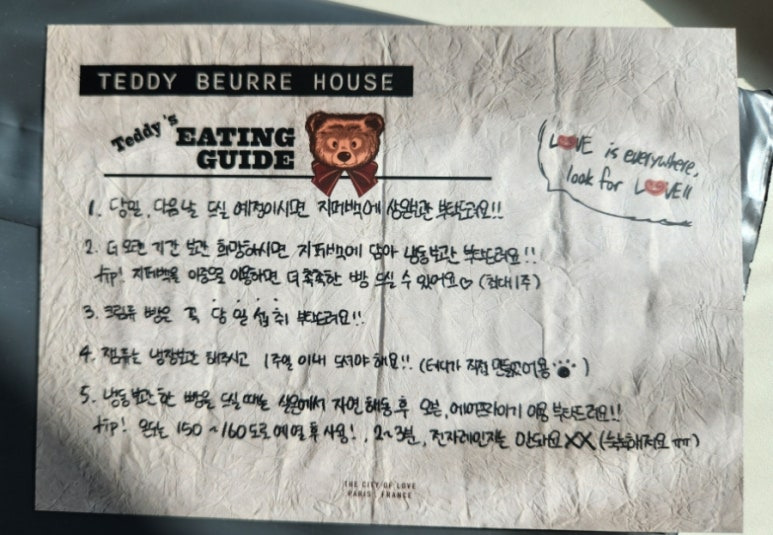 TEDDY BEURRE HOUSE
Teddy's
EATING
GUIDE
LOVE is everywhere,
look for LOVE!!
1. 당일, 다음날 드실 예정이시면 지퍼백에 상온보관 부탁드려요!!
2. 더 오랜 기간 보관 희망하시면 지퍼백에 담아 냉동보관 부탁드려요!!
tip! 지퍼백을 이중으로 이용하면 더 촉촉한 빵 드실 수 있어요♡ (최대 1주)
3. 크림류 빵은 꼭 당 일 섭 취 부탁드려요!!
4. 잼류는 냉장보관 해주시고 1주일 이내 드셔야 해요!! (테디가 직접 만들었어용 🐾)
5. 냉동보관한 빵을 드실 때는 실온에서 자연 해동 후 오븐, 에어프라이기 이용 부탁드려요!!
tip! 온도는 150~160도로 예열 후 사용!, 2~3분, 전자레인지는 안돼요 XX (눅눅해져요 ㅠㅠ)
THE CITY OF LOVE
PARIS, FRANCE